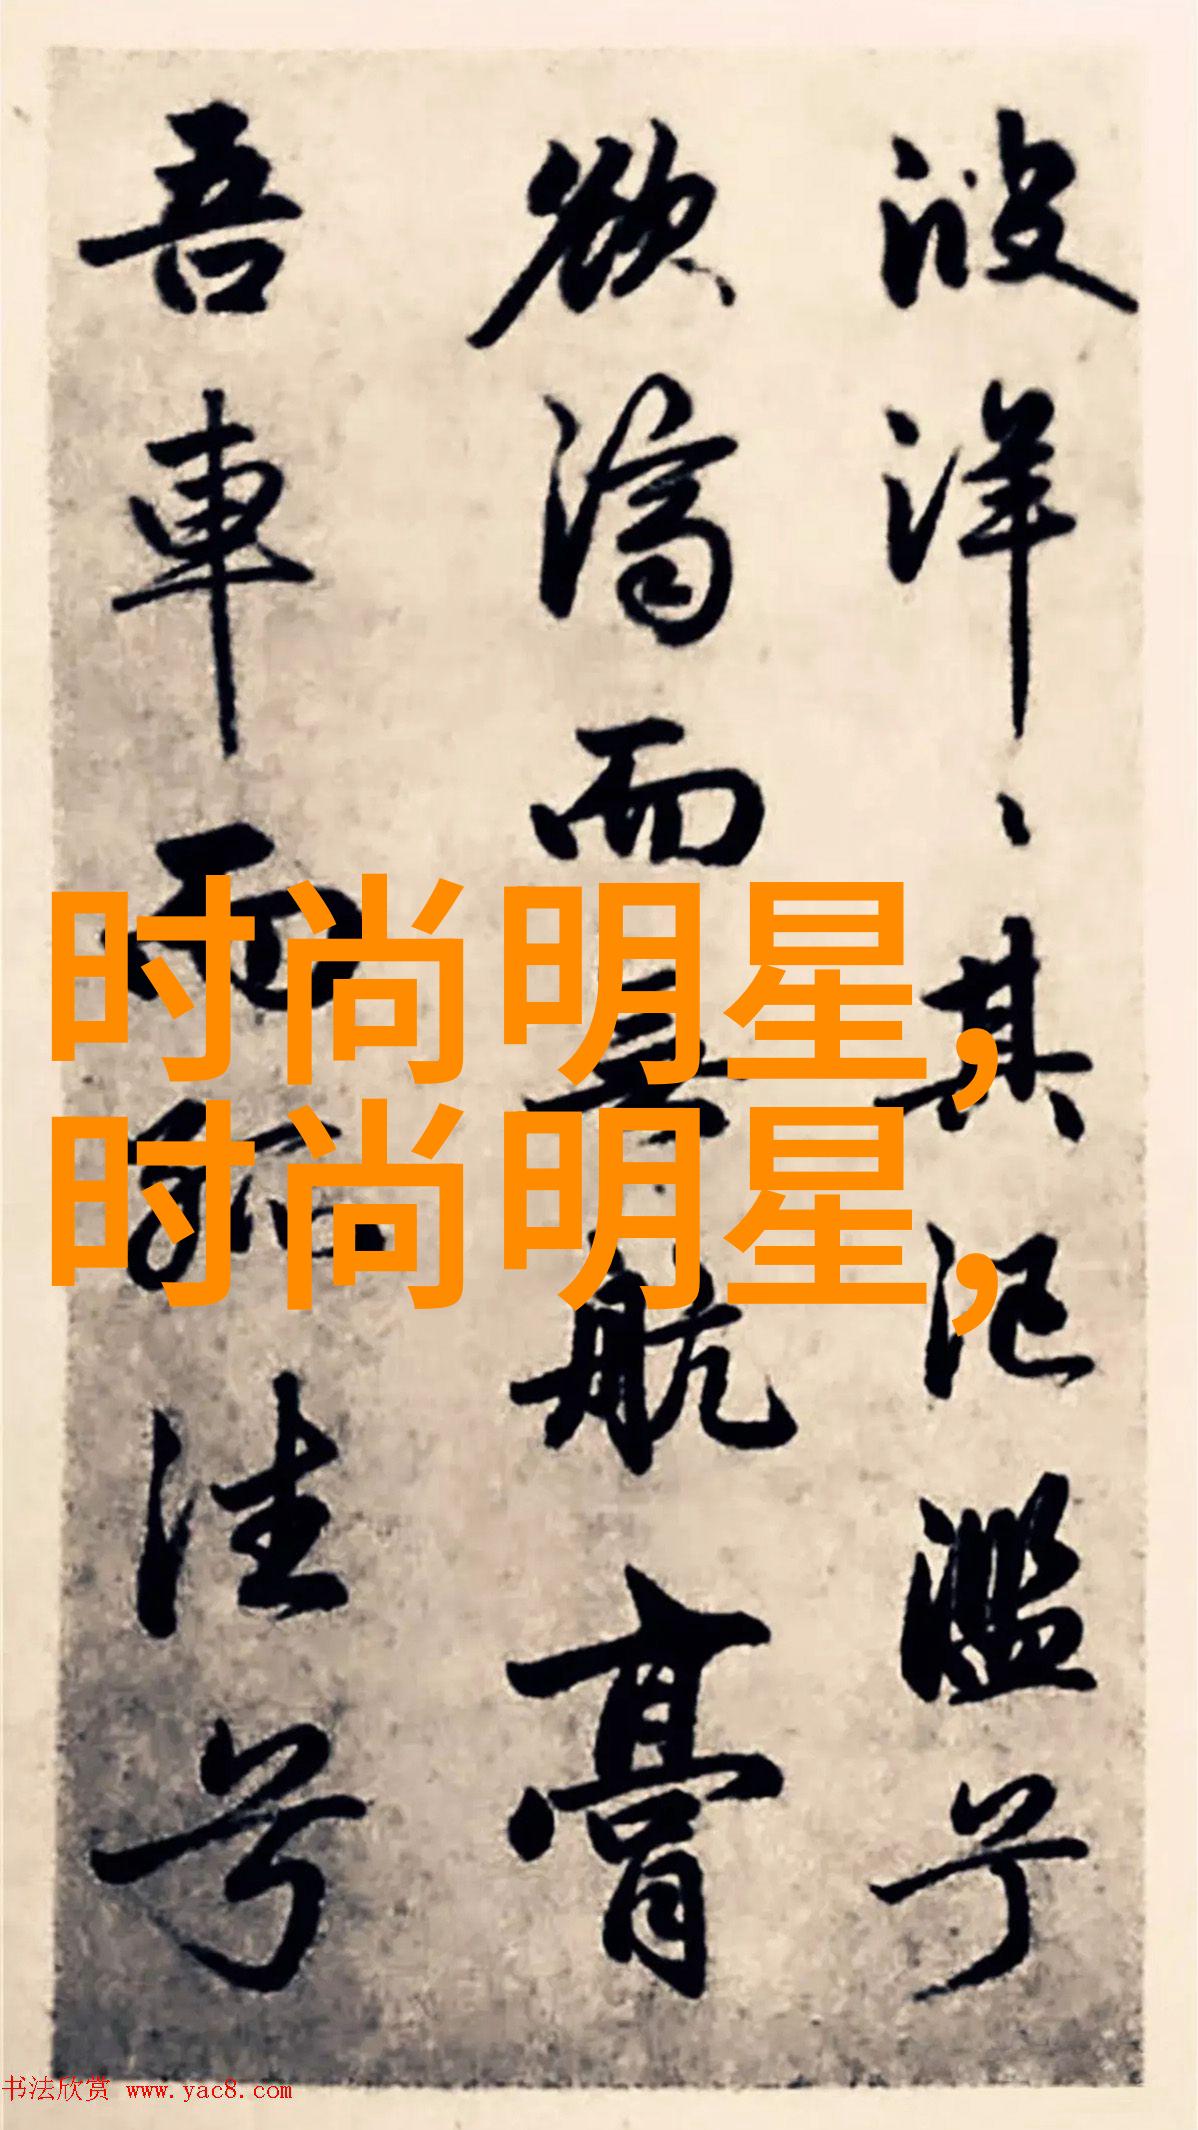 波洋〻其氾濫兮
欲濟而無航膏
吾車而孤往兮
时尚明星，
时尚明星，
书法欣赏 www.yac8.com